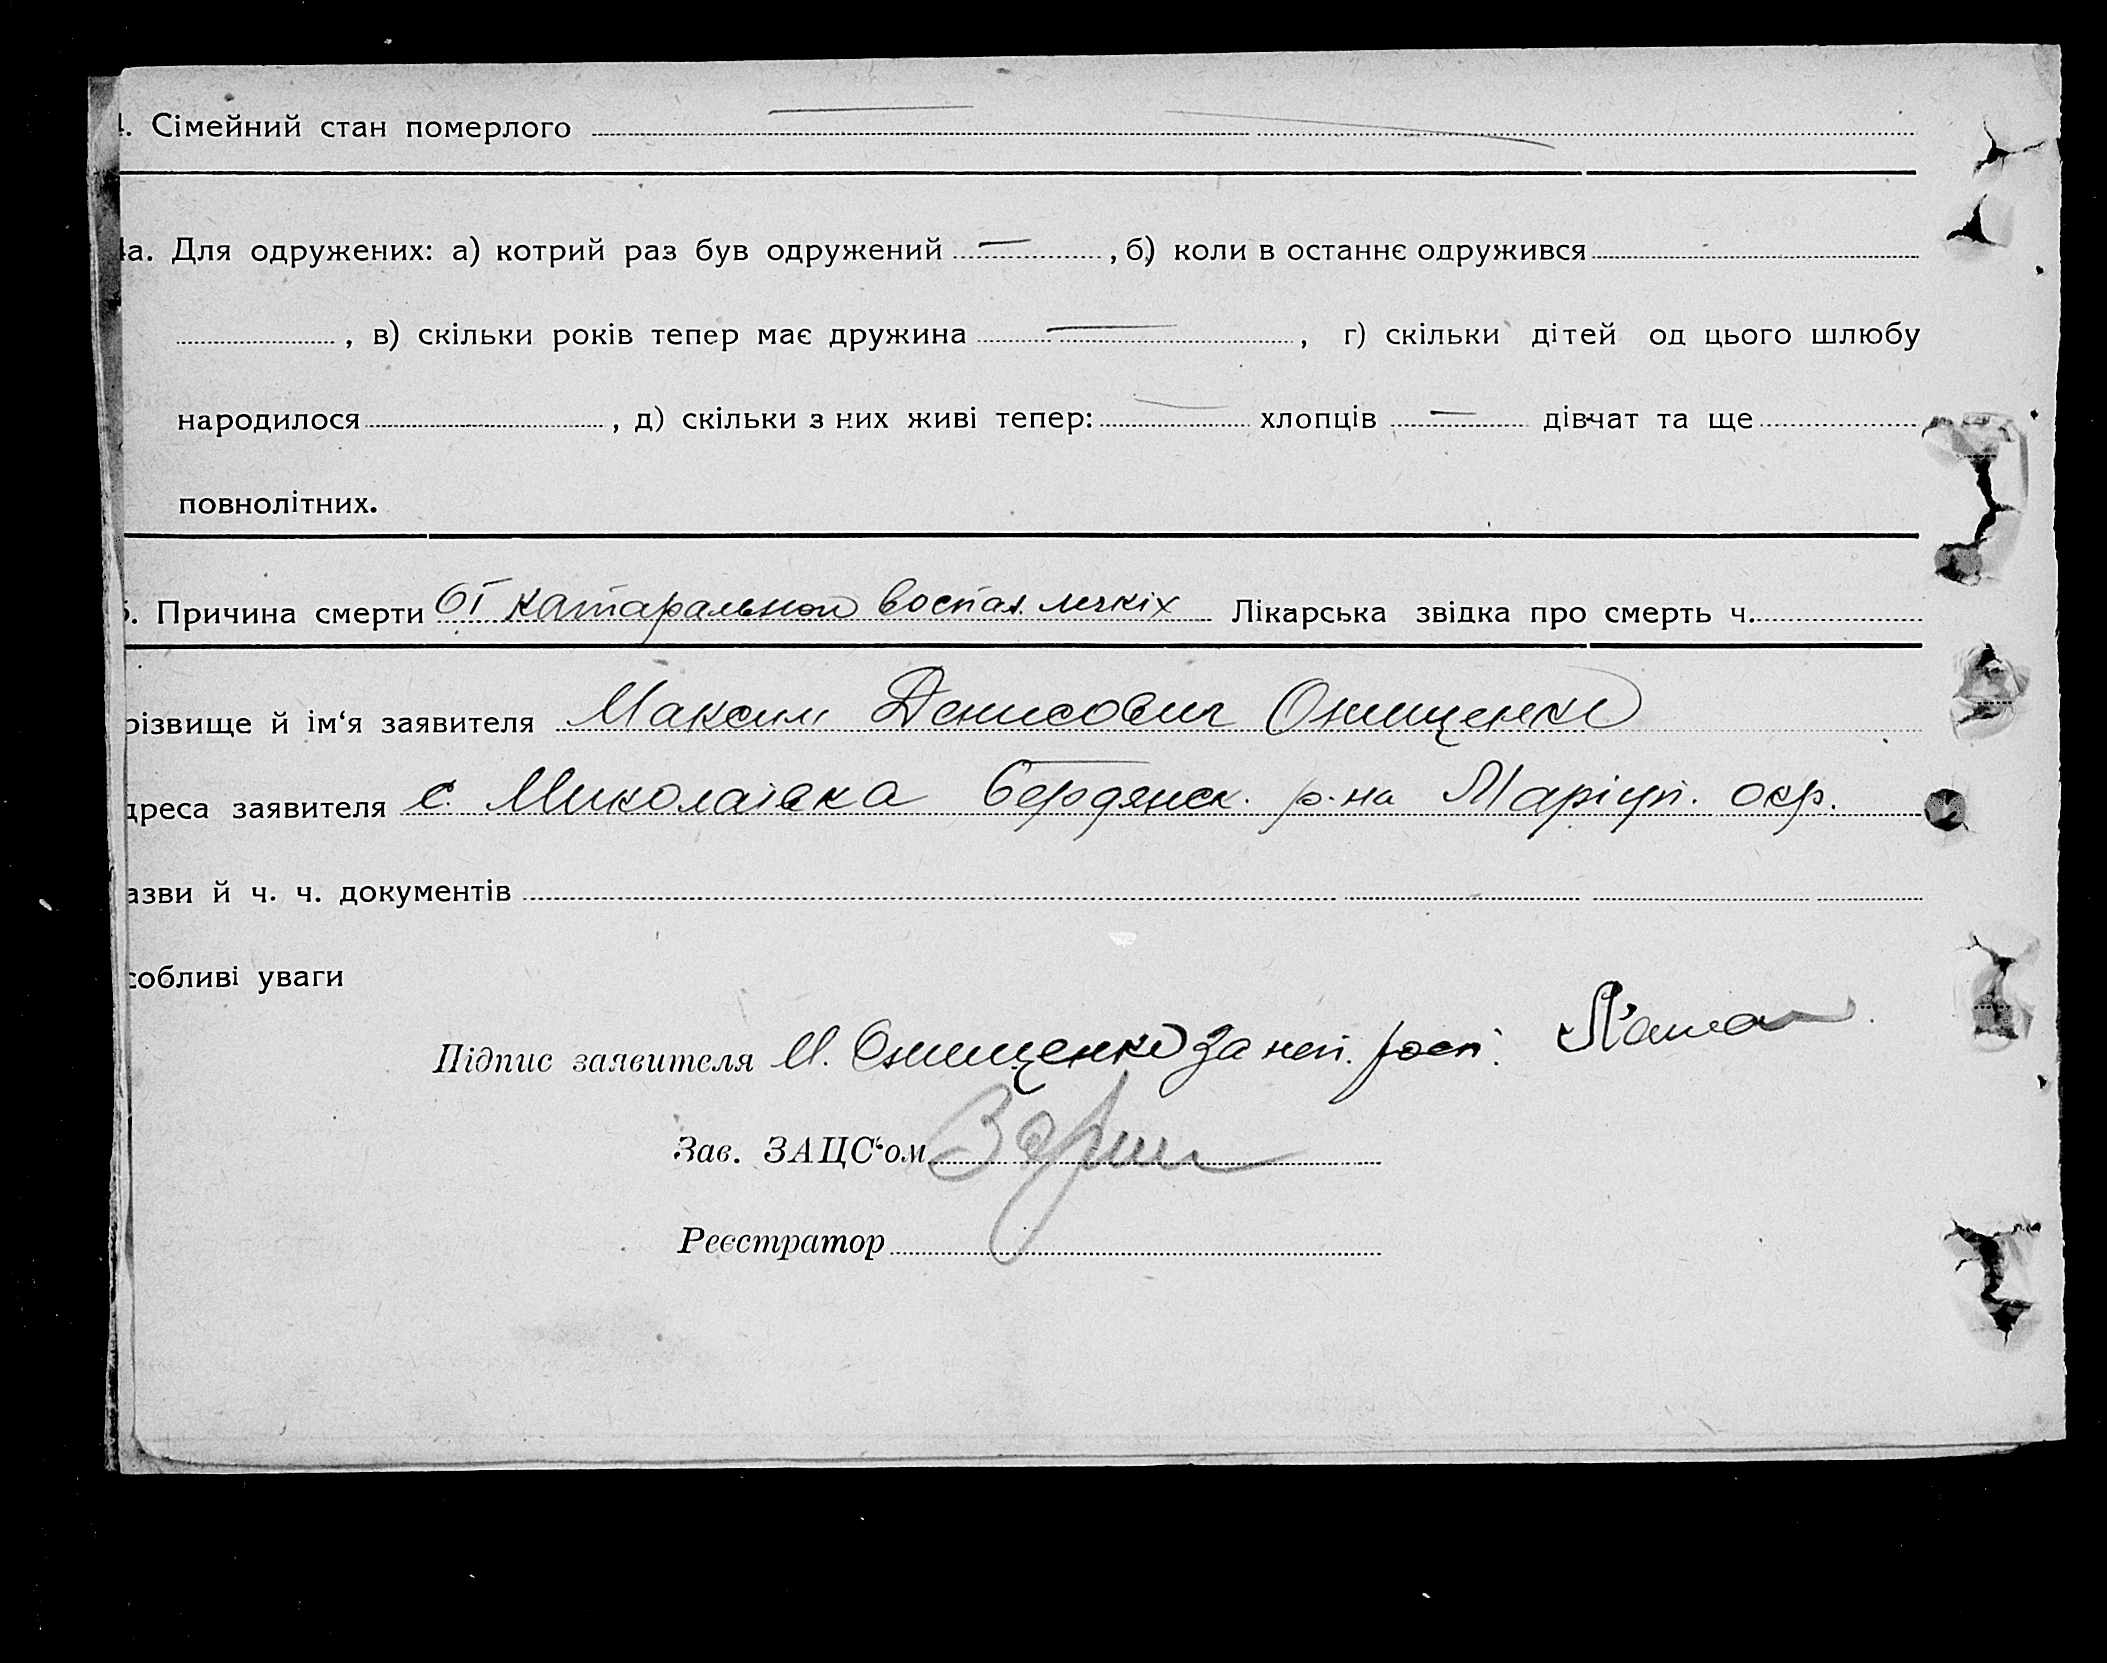 4. Сімейний стан померлого
4а. Для одружених: а) котрий раз був одружений — , б) коли в останнє одружився
, в) скільки років тепер має дружина — , г) скільки дітей од цього шлюбу
народилося , д) скільки з них живі тепер: — хлопців — дівчат та ще
повнолітних.
5. Причина смерти от катаральной воспал. легкіх Лікарська звідка про смерть ч.
різвище й ім‘я заявителя Максим Денисович Онищенко
дреса заявителя с. Миколаівка Бердянск. р-на Маріуп. окр.
азви й ч. ч. документів
собливі уваги
Підпис заявителя М. Онищенко за неп. росп.
Зав. ЗАЦС‘ом
Реєстратор